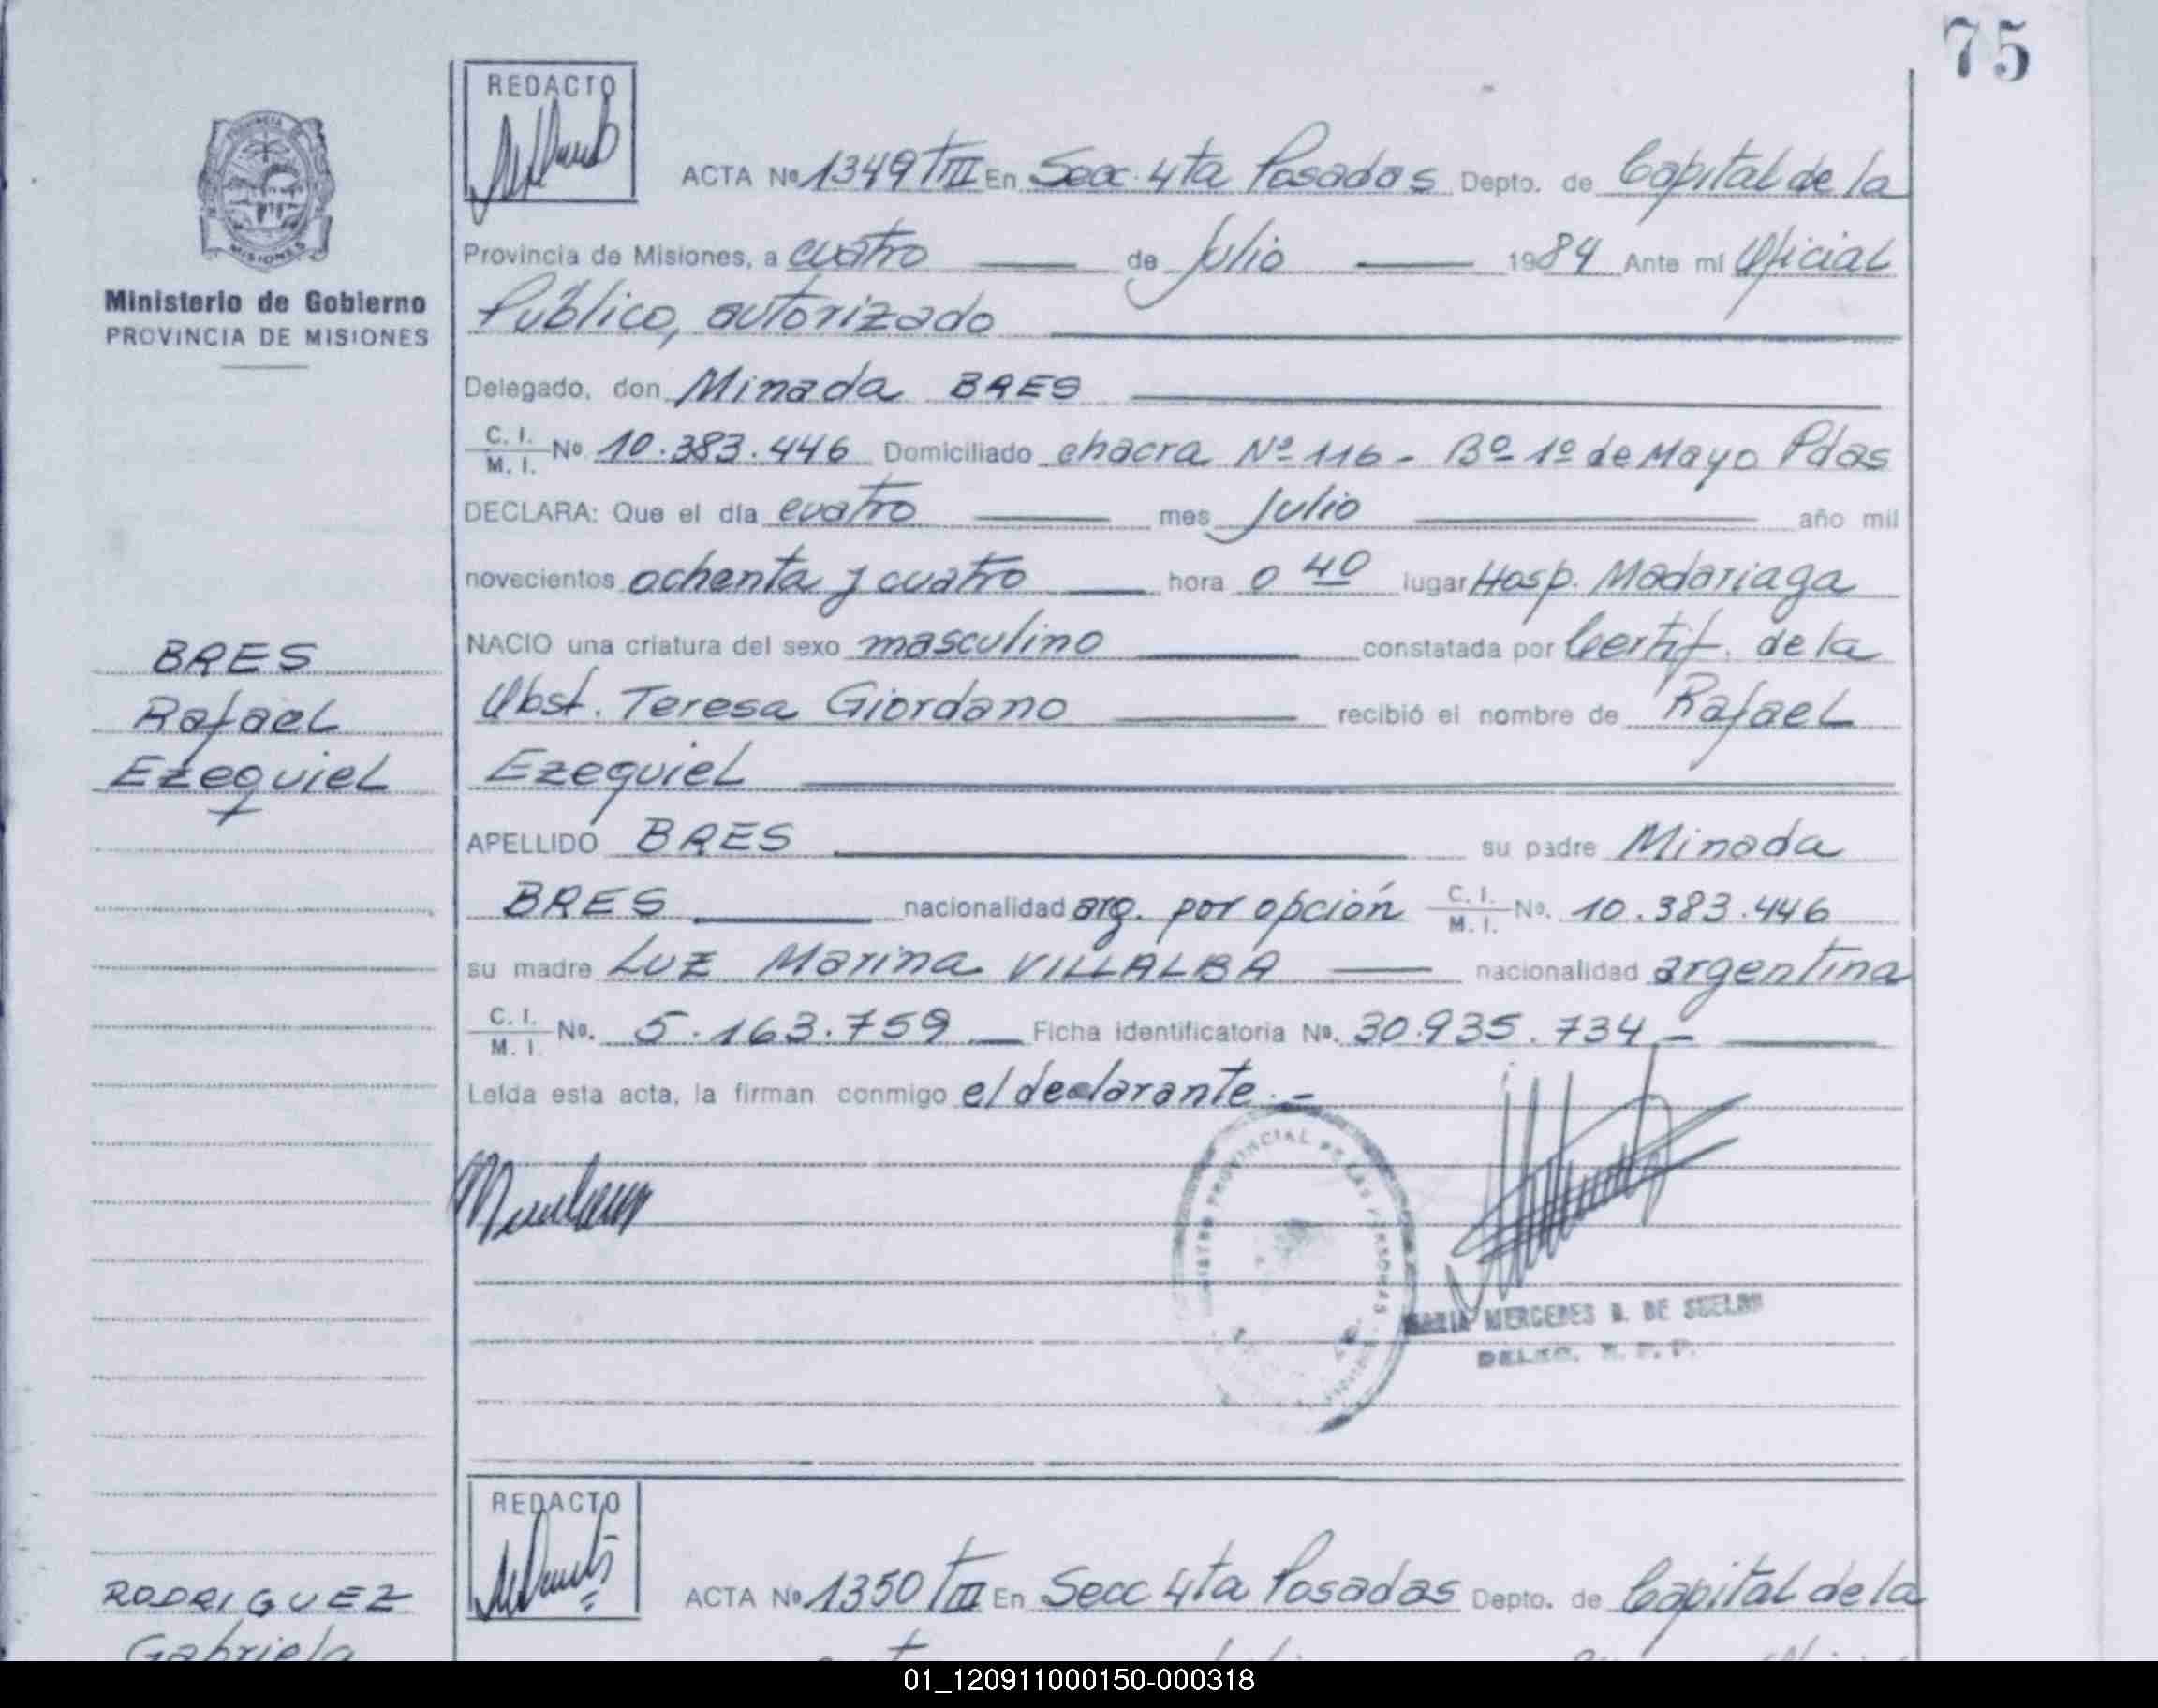 75
REDACTO
ACTA Nº 1349 TIII En Secc. 4ta Posadas Depto. de Capital de la
Provincia de Misiones, a cuatro de Julio 1984 Ante mi Oficial
Público, autorizado
Ministerio de Gobierno
PROVINCIA DE MISIONES
Delegado, don Minada BRES
C. I. M. I. Nº 10.383.446 Domiciliado chacra Nº 116 - Bº 1º de Mayo Pdas
DECLARA: Que el día cuatro mes Julio año mil
novecientos ochenta y cuatro hora 0 40 lugar Hosp. Madariaga
NACIO una criatura del sexo masculino constatada por Certif. de la
Obst. Teresa Giordano recibió el nombre de Rafael
Ezequiel
BRES
Rafael
Ezequiel
APELLIDO BRES su padre Minada
BRES nacionalidad arg. por opción C. I. M. I. Nº. 10.383.446
su madre Luz Marina VILLALBA nacionalidad argentina
C. I. M. I Nº. 5.163.759 Ficha Identificatoria Nº. 30.935.734 -
Leída esta acta, la firman conmigo el declarante.-
PROVINCIAL DE LAS PERSONAS
MARIA MERCEDES B. DE
REDACTO
ACTA Nº 1350 TIII En Secc 4ta Posadas Depto. de Capital de la
RODRIGUEZ
Gabriela
01_120911000150-000318